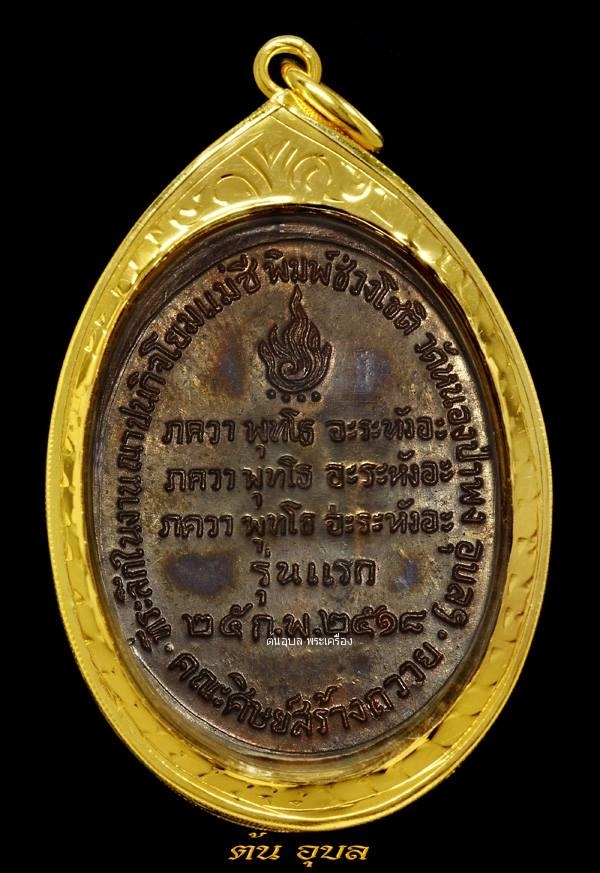 ที่ระลึกในงาน ฌาปนกิจโยมแม่ชี พิมพ์ช่วงโชติ วัดหนองป่าพง อุบลฯ
ภควา พุทโธ อะระหังอะ
ภควา พุทโธ อะระหังอะ
ภควา พุทโธ อะระหังอะ
รุ่นแรก
๒๕ ก.พ. ๒๕๑๘
คณะศิษย์สร้างถวาย
ต้นอุบล พระเครื่อง
ต้น อุบล